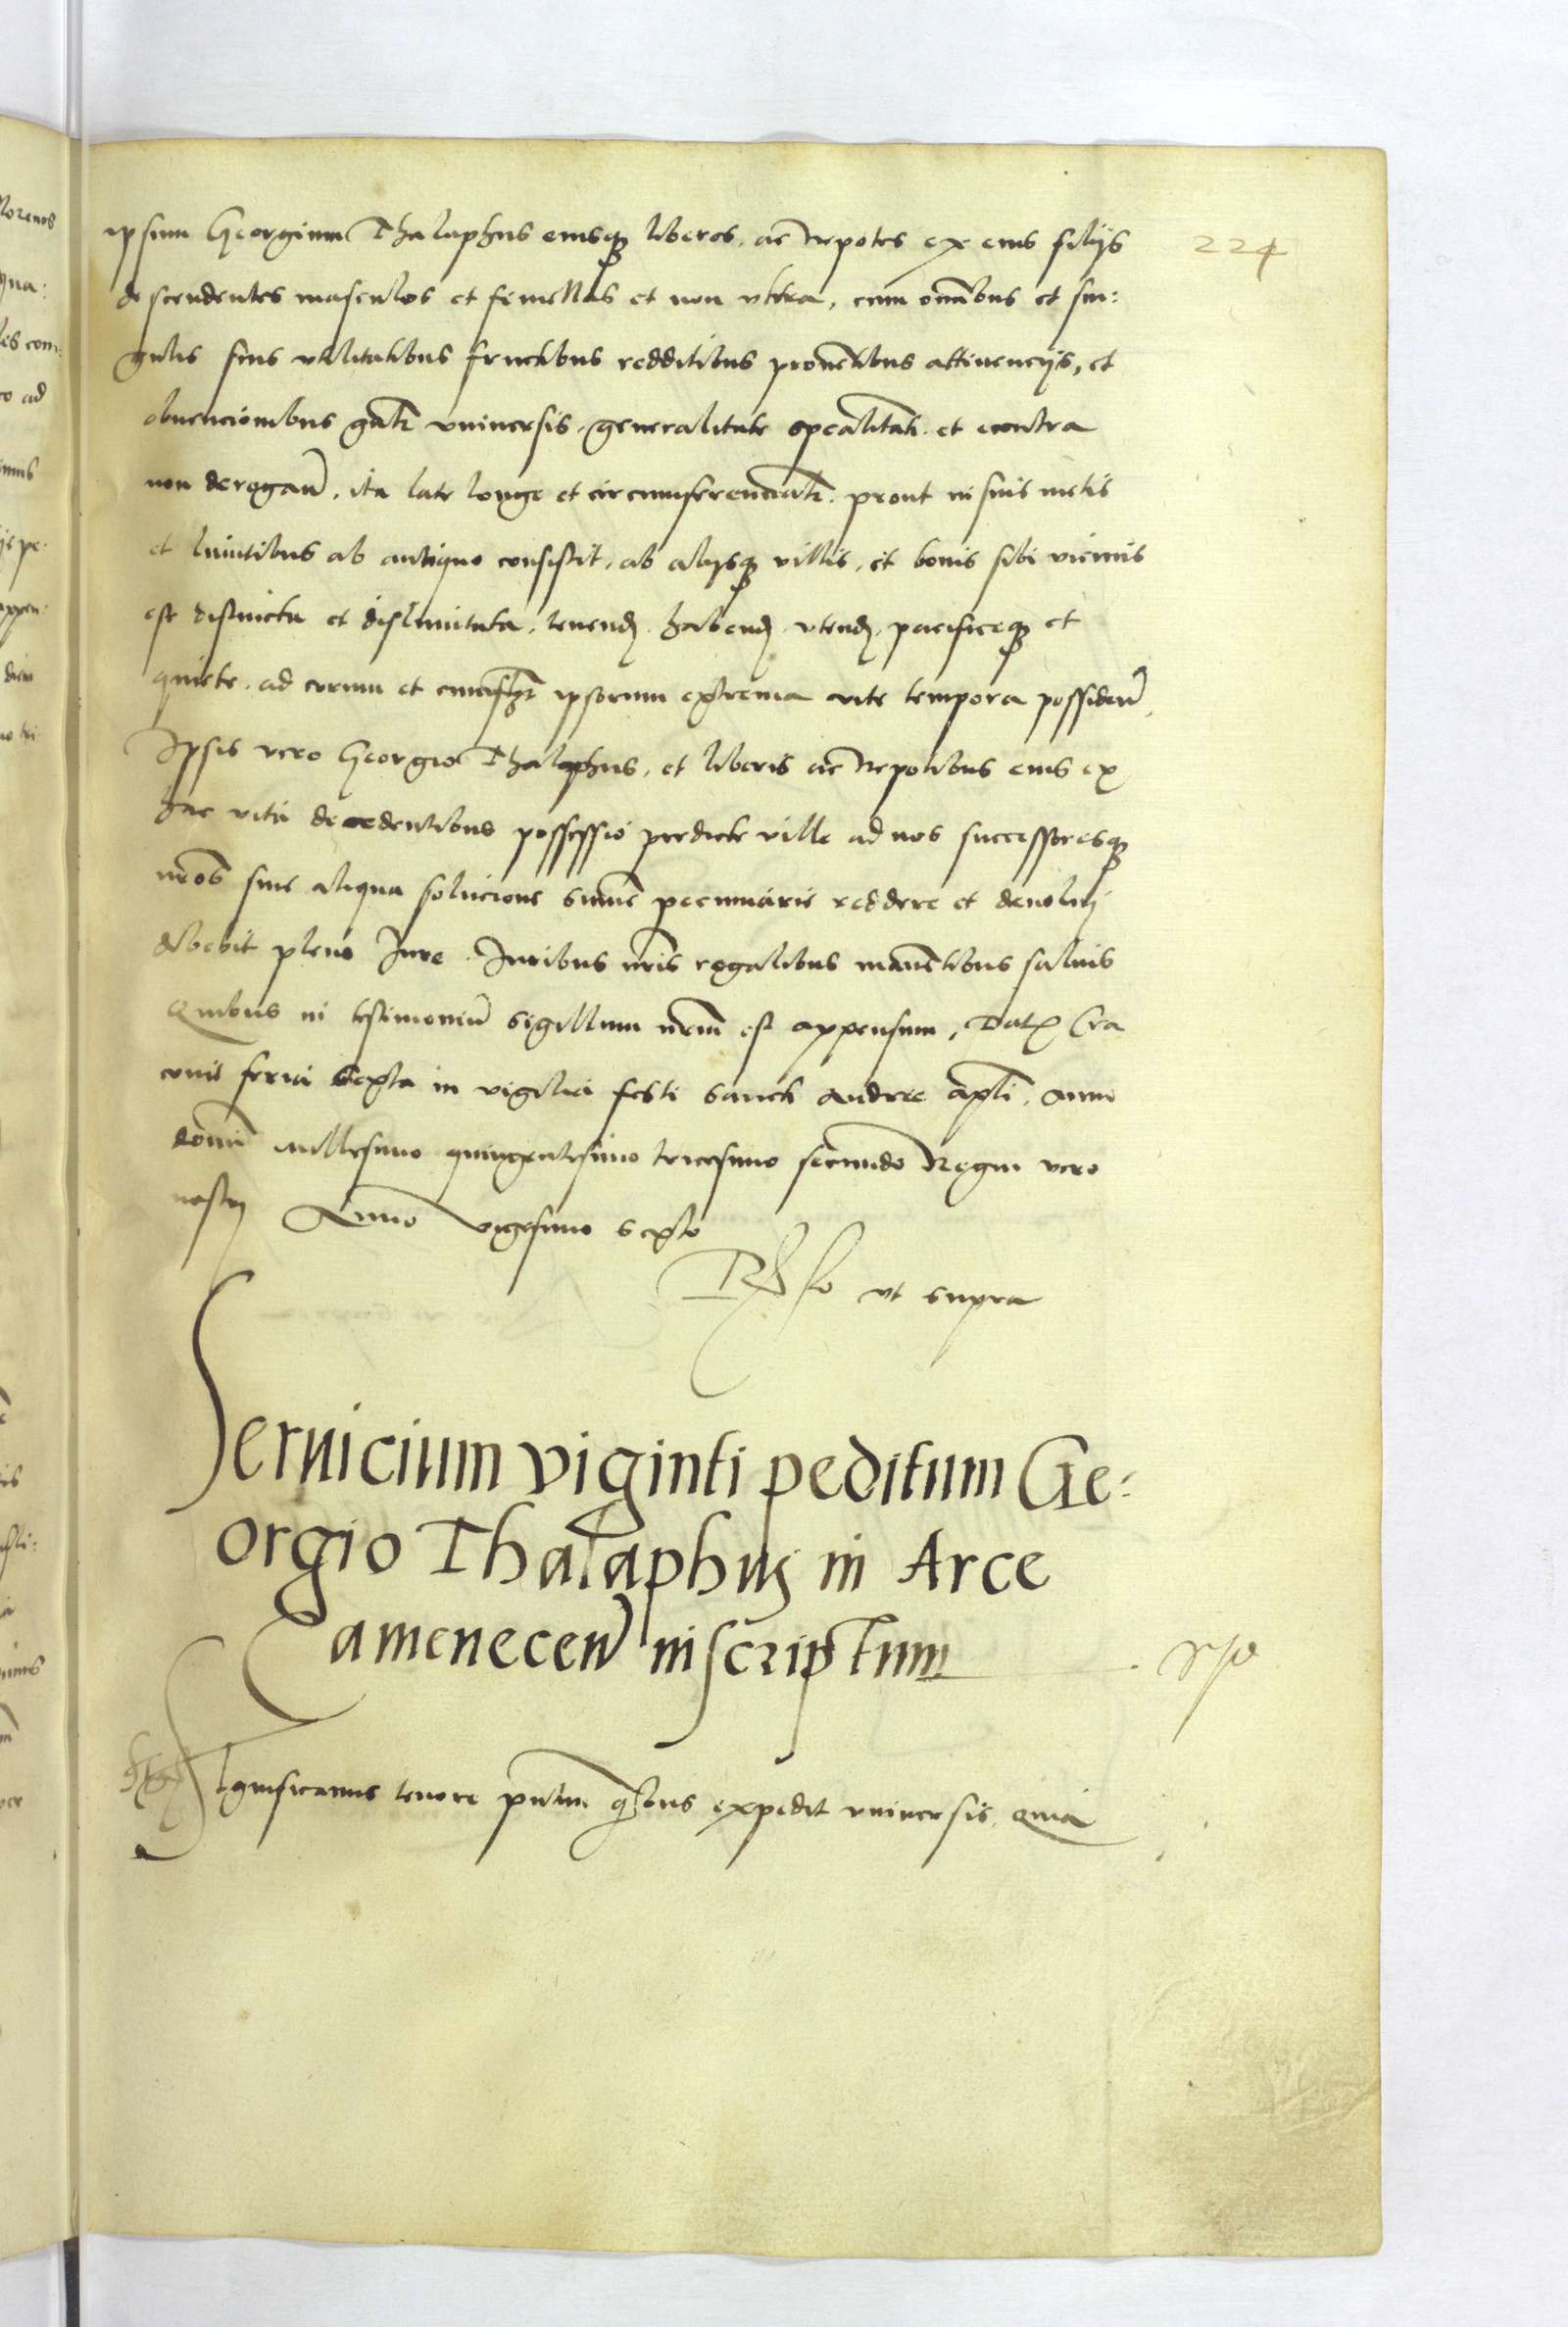 224
ipsum Georgium Thalaphus eiusq liberos, ac Nepotes ex eius filijs
descendentes masculos et femellas et non vltra, cum omibus et sin:
gulis suis vtilitatibus fructibus redditibus prouetibus attinencijs, et
obuencionibus gnali vniuersis, generalitate specalitati et econtra
non derogan, ita late longe et circumferencialr prout in suis metis
et limitibus ab antiquo consistit, ab alijsq villis, et bonis sibi vicinis
est distincta et dislimitata, tenend habend vtend pacificeq et
quiete, ad eorum et cuiuslibet ipsorum extrema vite tempora possiden,
Ipsis vero Georgio Thalaphus, et liberis ac Nepotibus eius ex
hac vita decedentibus possessio predicte ville ad nos successoresq
nros sine aliqua solucione summe pecuniarie reddere et deuolui
debebit pleno Jure. Juribus nris regalibus manetibus saluis
Quibus in testimoniu sigillum nrum est appensum, Dat Cra
couie feria sexta in vigilia festi sancti Andree apli, Anno
domi millesimo quingentesimo tricesimo secundo Regni vero
nostri Anno vigesimo sexto
ut supra
Seruicium viginti peditum Ge:
orgio Thalaphus in Arce
Camenecen inscriptum
Significamus tenore pntium qbus expedit vniuersis, Quia